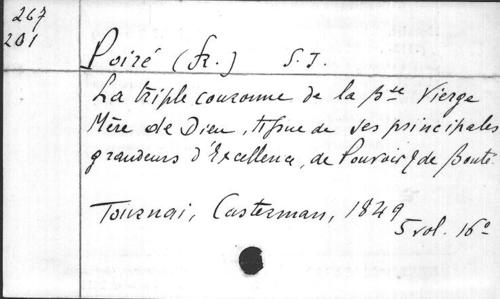 267
201
Poiré (fr.) S. J.
La triple couronne de la Bse Vierge
Mère de Dieu, tissue de ses principales
grandeurs d'Excellence, de Pouvoir & de Bonté.
Tournai, Casterman, 1849
5 vol. 16°